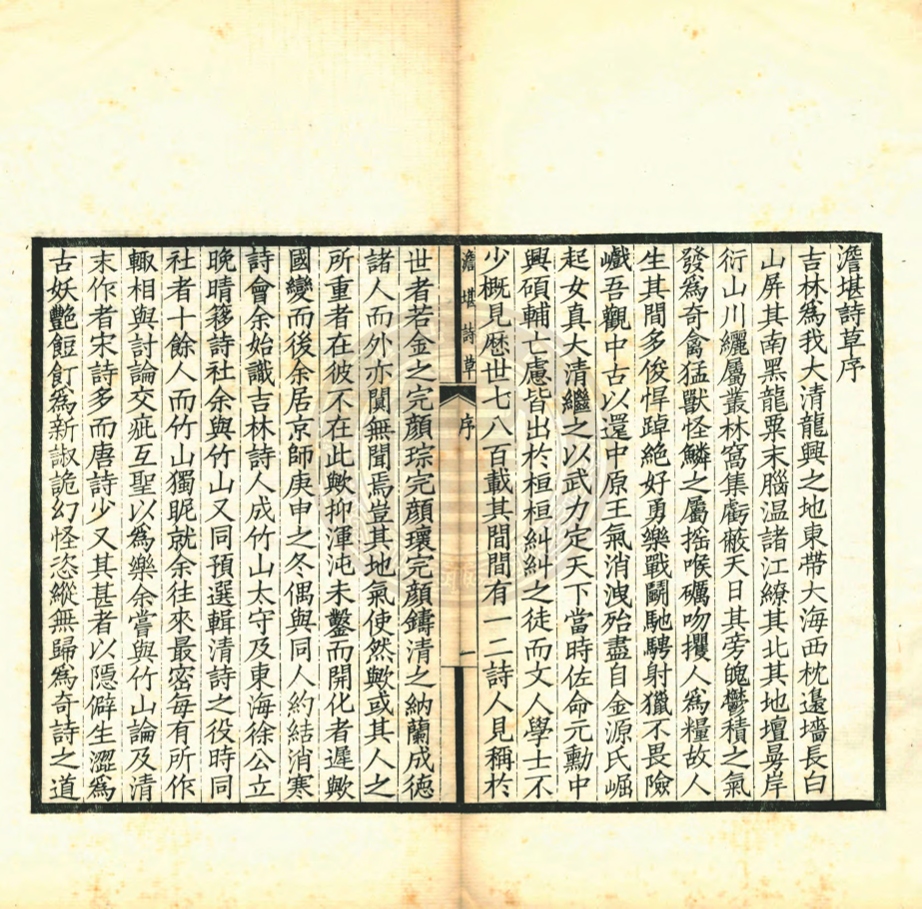 澹堪詩草序
吉林爲我大清龍興之地東帶大海西枕邊墻長白
山屏其南黑龍粟末腦温諸江繚其北其地壇曼岸
衍山川纚屬叢林窩集虧蔽天日其旁魄鬱積之氣
發爲奇禽猛獸怪鱗之屬搖喉礪吻攫人爲糧故人
生其間多俊悍踔絶好勇樂戰鬭馳騁射獵不畏險
巇吾觀中古以還中原王氣消洩殆盡自金源氏崛
起女真大清繼之以武力定天下當時佐命元勳中
興碩輔亡慮皆出於桓桓糾糾之徒而文人學士不
少概見厯世七八百載其間間有一二詩人見稱於
澹堪詩草
序
一
世者若金之完顔琮完顔瓌完顔鑄清之納蘭成德
諸人而外亦闃無聞焉豈其地氣使然歟或其人之
所重者在彼不在此歟抑渾沌未鑿而開化者遲歟
國變而後余居京師庚申之冬偶與同人約結消寒
詩會余始識吉林詩人成竹山太守及東海徐公立
晚晴簃詩社余與竹山又同預選輯清詩之役時同
社者十餘人而竹山獨昵就余往來最密每有所作
輒相與討論交疵互聖以爲樂余嘗與竹山論及清
末作者宋詩多而唐詩少又其甚者以隱僻生澀爲
古妖艷餖飣爲新諔詭幻怪恣縱無歸爲奇詩之道